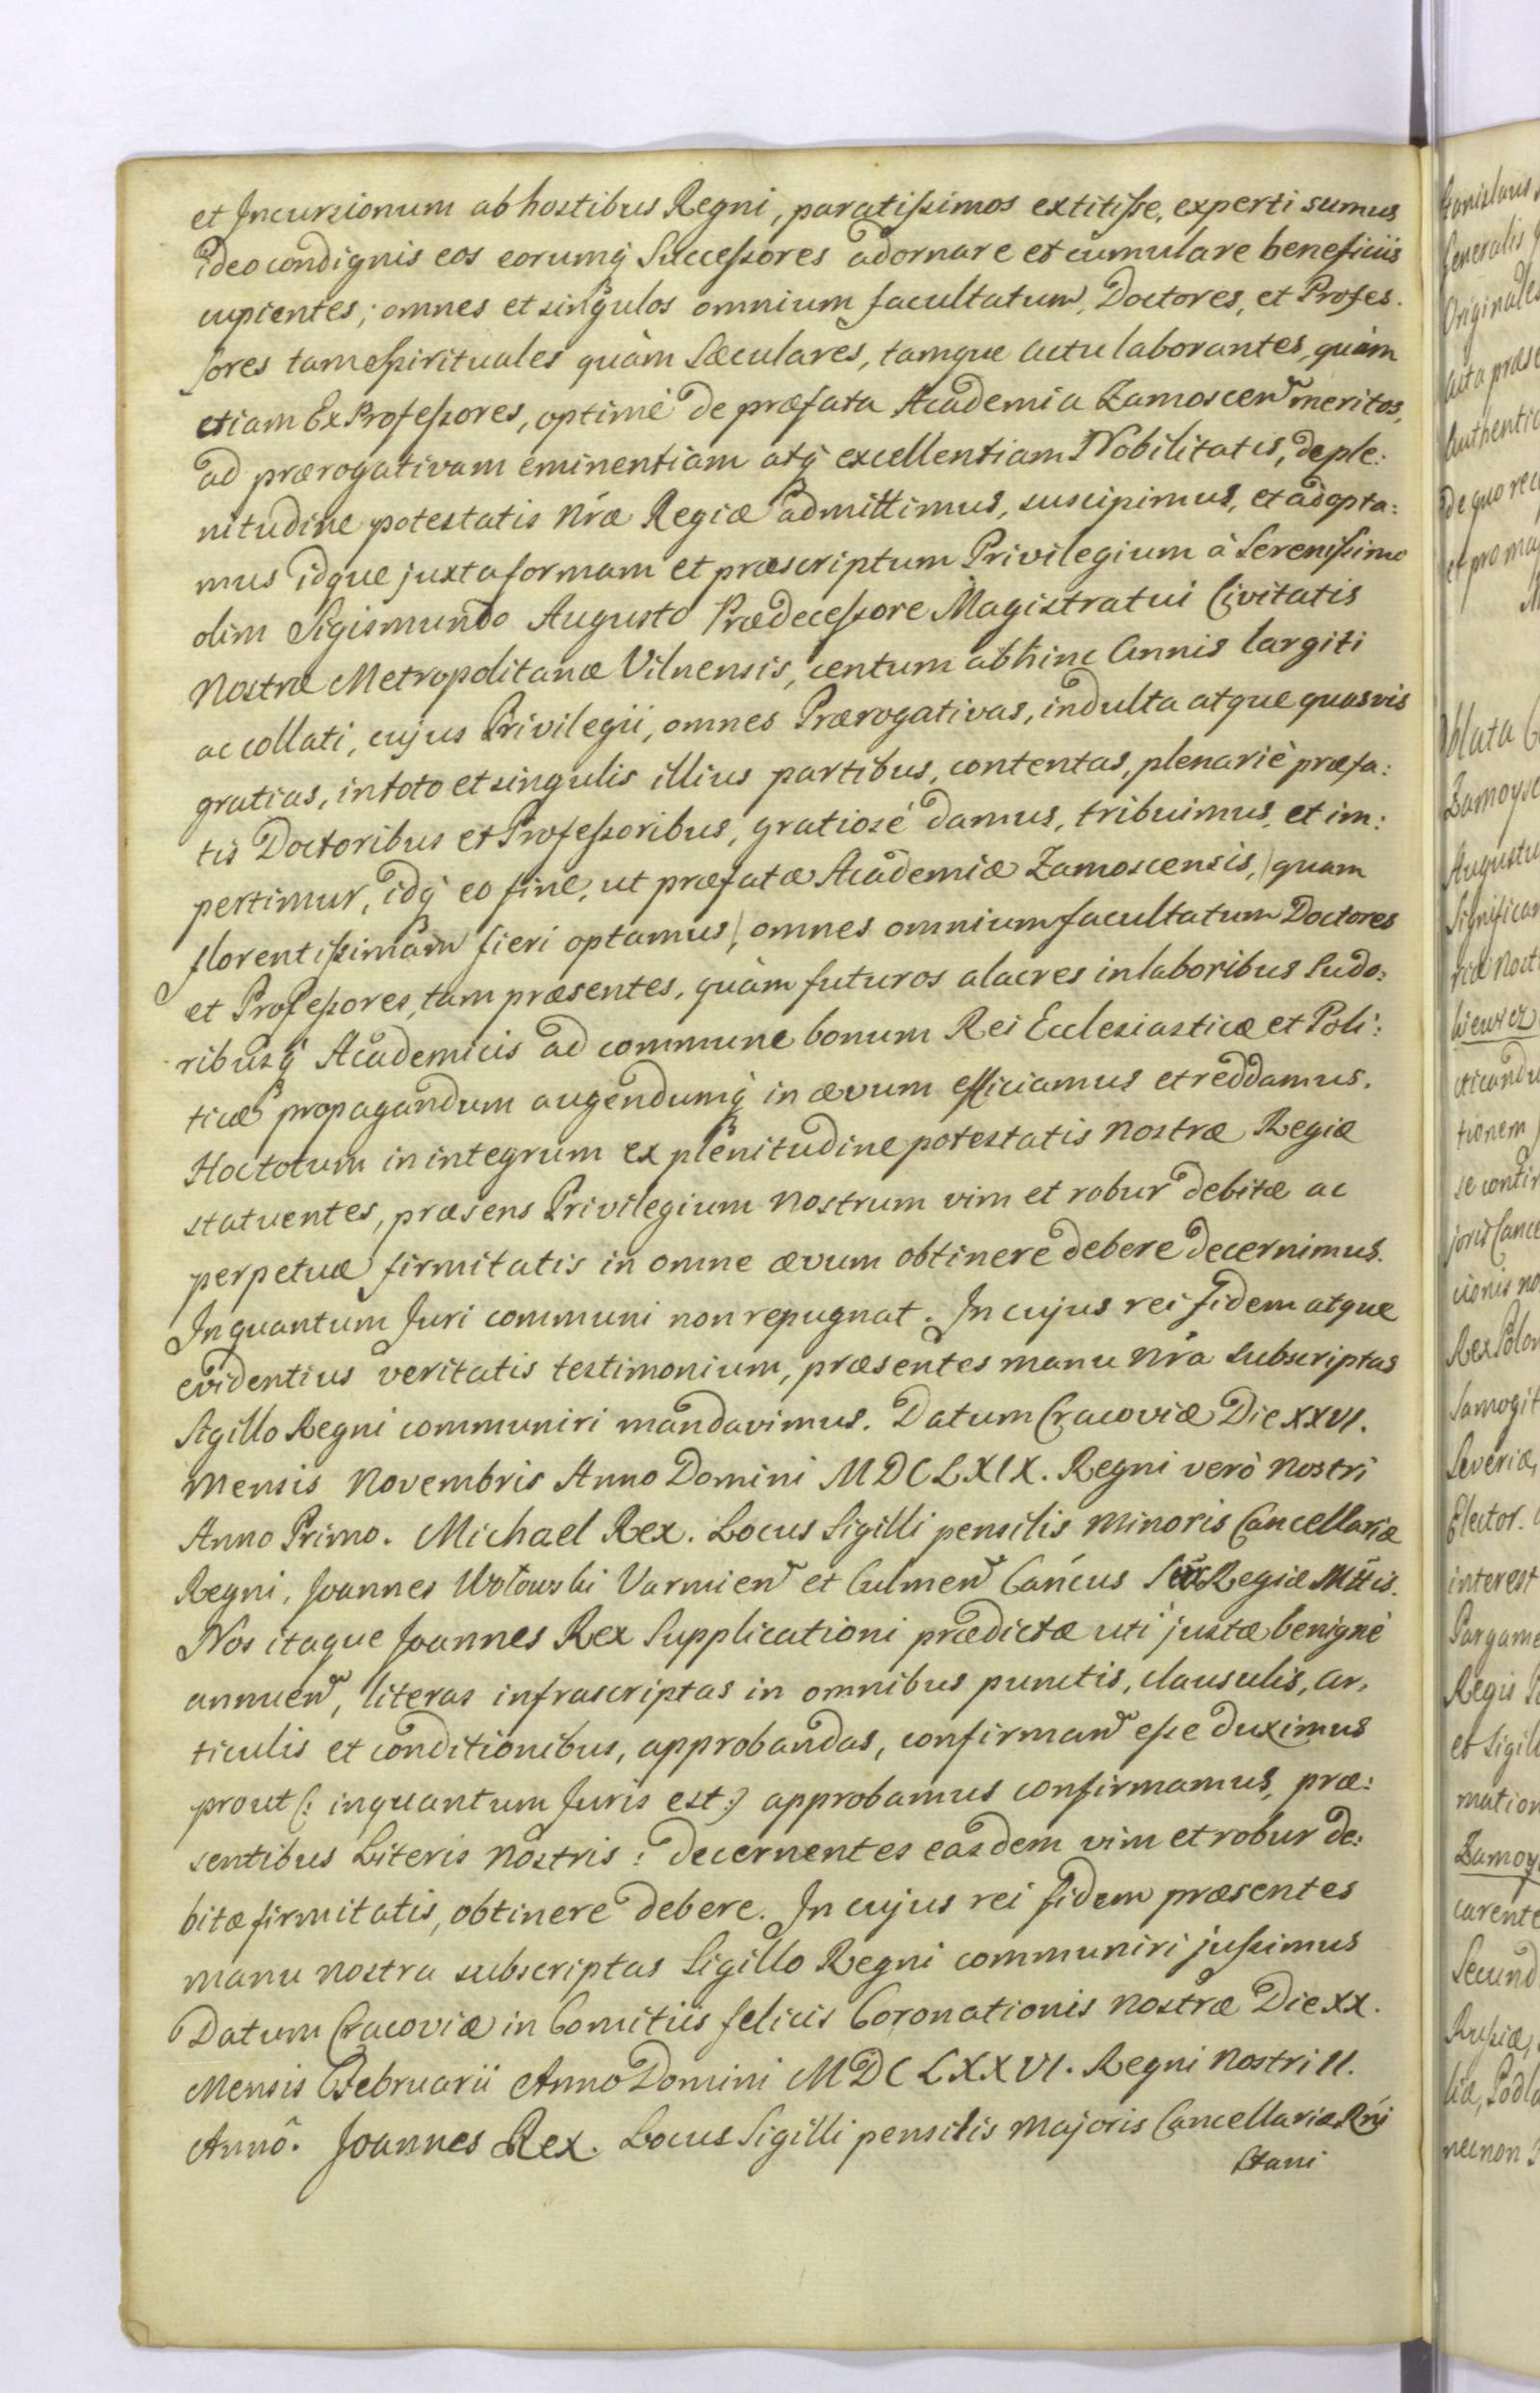 et Incursionum ab hostibus Regni, paratissimos extitisse, experti sumus
ideo condignis eos eorumq̃ Successores adornare et cumulare beneficiis
cupientes; omnes et singulos omnium facultatum, Doctores, et Profes.
sores tam spirituales quàm Sæculares, tamque actu laborantes, quàm
etiam Ex Professores, optimè de præfata Academia Zamoscen̄ meritos,
ad prærogativam eminentiam atq̃ excellentiam Nobilitatis, de ple:
nitudine potestatis nr̃æ Regiæ admittimus, suscipimus, et adopta:
mus idque juxta formam et præscriptum Privilegium à Serenissimo
olim Sigismundo Augusto Prædecessore Magistratui Civitatis
Nostræ Metropolitanæ Vilnensis, centum abhinc Annis largiti
ac collati, cujus Privilegii, omnes Prærogativas, indulta atque quasvis
gratias, in toto et singulis illius partibus, contentas, plenariè præfa:
tis Doctoribus et Professoribus, gratiosè damus, tribuimus, et im:
pertimur, idq̃ eo fine, ut præfatæ Academiæ Zamoscensis, /quam
florentissimam fieri optamus/, omnes omnium facultatum Doctores
et Professores, tam præsentes, quàm futuros alacres in laboribus Sudo:
ribusq̃ Academicis ad commune bonum Rei Ecclesiasticæ et Poli:
ticæ propagandum augendumq̃ in ævum efficiamus et reddamus.
Hoc totum in integrum ex plenitudine potestatis nostræ Regiæ
statuentes, præsens Privilegium nostrum vim et robur debitæ ac
perpetuæ firmitatis in omne ævum obtinere debere decernimus.
Inquantum Juri communi non repugnat. In cujus rei fidem atque
evidentius veritatis testimonium, præsentes manu nr̃a subscriptas
Sigillo Regni communiri mandavimus. Datum Cracoviæ Die XXVI.
Mensis Novembris Anno Domini MDCLXIX. Regni verò nostri
Anno Primo. Michael Rex. Locus Sigilli pensilis minoris Cancellariæ
Regni, Joannes Wołowski Varmien̄ et Culmen̄ Can̄cus Regiæ Mttis.
Nos itaque Joannes Rex Supplicationi prædictæ uti justæ benignè
annuen̄, literas infrascriptas in omnibus punctis, clausulis, ar,
ticulis et conditionibus, approbandas, confirman̄ esse duximus
prout (: inquantum Juris est :) approbamus confirmamus, præ:
sentibus Literis nostris: decernentes easdem vim et robur de:
bitæ firmitatis, obtinere debere. In cujus rei fidem præsentes
manu nostra subscriptas Sigillo Regni communiri jussimus
Datum Cracoviæ in Comitiis felicis Coronationis nostræ Die XX.
Mensis Februarii Anno Domini MDCLXXVI. Regni nostri II.
Annô. Joannes Rex. Locus Sigilli pensilis majoris Cancellariæ Rñi
Stani